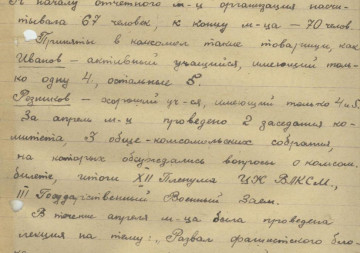 К началу отчетного м-ц организация насчи-
тывала 67 человек, к концу м-ца — 70 чел.
Приняты в комсомол такие товарищи, как
Иванов — активный учащийся, имеющий толь-
ко одну 4, остальные 5.
Резников — хороший уч-ся, имеющий только 4 и 5.
За апрель м-ц проведено 2 заседания ко-
митета, 3 обще-комсомольских собрания,
на которых обсуждались вопросы о комсом.
билете, итоги XII Пленума ЦК ВЛКСМ,
III Государственный Военный Заем.
В течение апреля м-ца была проведена
лекция на тему: "Развал фашистского бло-